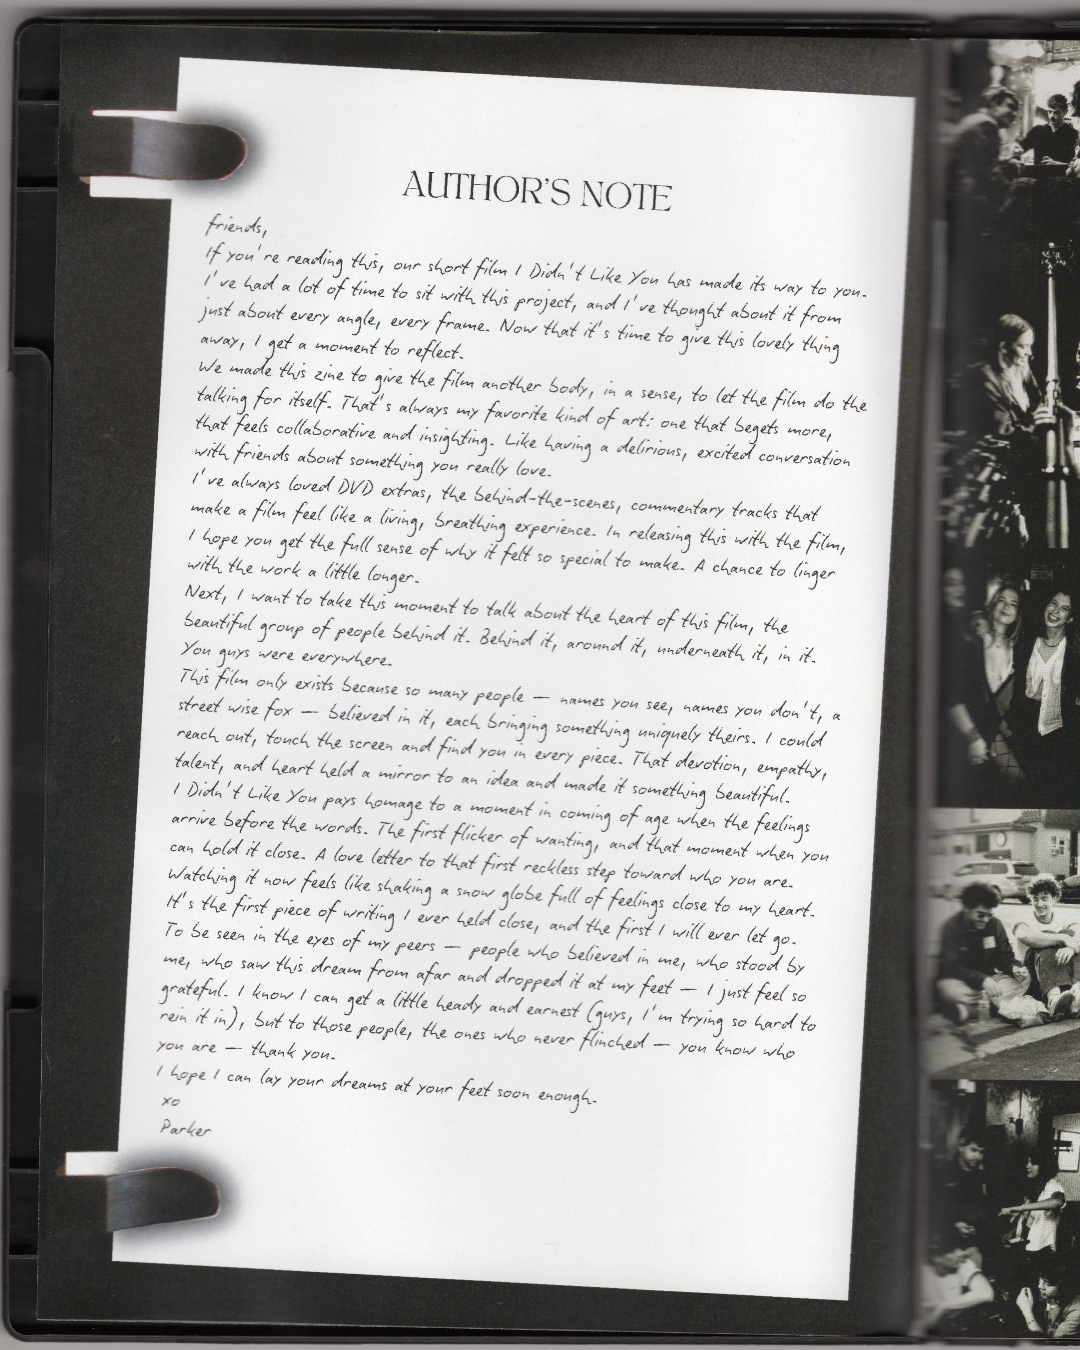 AUTHOR'S NOTE
friends,
If you're reading this, our short film I Didn't Like You has made its way to you.
I've had a lot of time to sit with this project, and I've thought about it from
just about every angle, every frame. Now that it's time to give this lovely thing
away, I get a moment to reflect.
We made this zine to give the film another body, in a sense, to let the film do the
talking for itself. That's always my favorite kind of art: one that begets more,
that feels collaborative and insighting. Like having a delirious, excited conversation
with friends about something you really love.
I've always loved DVD extras, the behind-the-scenes, commentary tracks that
make a film feel like a living, breathing experience. In releasing this with the film,
I hope you get the full sense of why it felt so special to make. A chance to linger
with the work a little longer.
Next, I want to take this moment to talk about the heart of this film, the
beautiful group of people behind it. Behind it, around it, underneath it, in it.
You guys were everywhere.
This film only exists because so many people — names you see, names you don't, a
street wise fox — believed in it, each bringing something uniquely theirs. I could
reach out, touch the screen and find you in every piece. That devotion, empathy,
talent, and heart held a mirror to an idea and made it something beautiful.
I Didn't Like You pays homage to a moment in coming of age when the feelings
arrive before the words. The first flicker of wanting, and that moment when you
can hold it close. A love letter to that first reckless step toward who you are.
Watching it now feels like shaking a snow globe full of feelings close to my heart.
It's the first piece of writing I ever held close, and the first I will ever let go.
To be seen in the eyes of my peers — people who believed in me, who stood by
me, who saw this dream from afar and dropped it at my feet — I just feel so
grateful. I know I can get a little heady and earnest (guys, I'm trying so hard to
rein it in), but to those people, the ones who never flinched — you know who
you are — thank you.
I hope I can lay your dreams at your feet soon enough.
xo
Parker